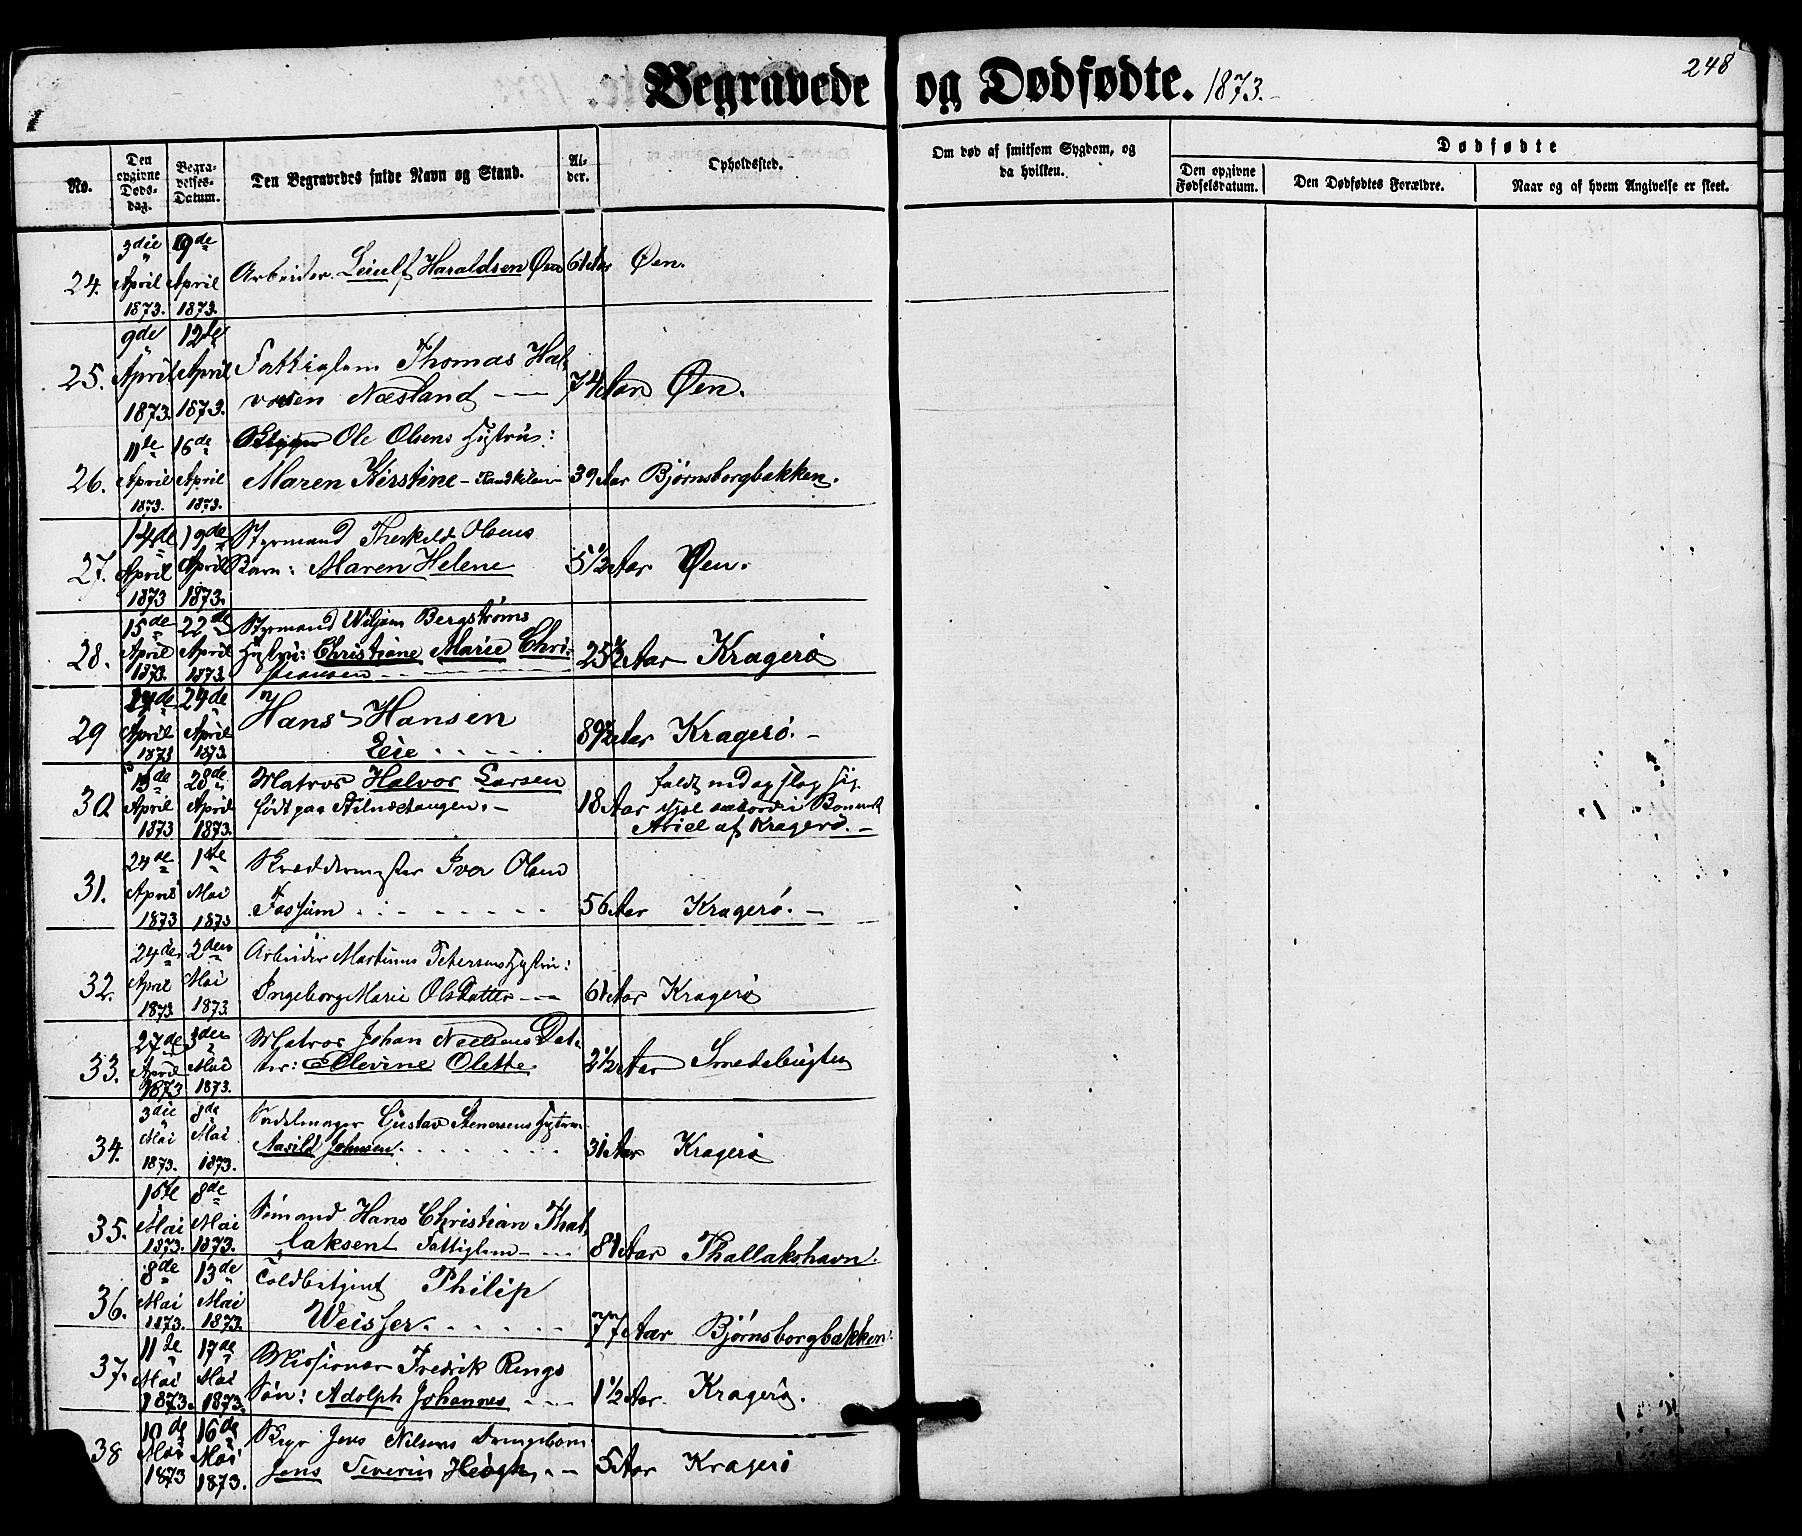 Begravede og Dødfødte. 1873.
248
No.
Den opgivne Døds-dag.
Begra-velses-Datum.
Den Begravedes fulde Navn og Stand.
Al-der.
Opholdssted.
Om død af smitsom Sygdom, og da hvilken.
Dødfødte
Den opgivne Fødselsdatum.
Den Dødfødtes Forældre.
Naar og af hvem Angivelse er skeet.
3die 19de
24. April April Arbeider Leiulf Haraldsen Øen 61 Aar Øen.
1873. 1873.
9de 12te
25. April April Fattiglem Thomas Hal-
1873. 1873. vorsen Næsland 74 Aar Øen.
11te 16de Ole Olsens Hustru:
26. April April Maren Kirstine 39 Aar Bjørnsborgbakken.
1873. 1873.
14de 19de Styrmand Therkild Olsens
27. April April Barn: Maren Helene 5 1/2 Aar Øen.
1873 1873.
15de 22de Styrmand Wiljam Bergstrøms
28. April April Hustru: Christiane Marie Chri- 25 1/2 Aar Kragerø
1873 1873. stiansen
24de
29 April April Hans Hansen
1873 1873. Eie 89 1/2 Aar Kragerø.
28de Matros Halvor Larsen faldt ned og slog sig
30 April April født paa 18 Aar ihjel ombord i
1873 1873. Ariel af Kragerø.
24de 1ste Skræddermester Iver Olsen
31. April Mai Fossum 56 Aar Kragerø.
1873 1873
24de 2den Arbeider Martinus Petersens Hustru:
32. April Mai Ingeborg Marie Olsdatter 61 Aar Kragerø
1873 1873.
27de 3die Matros Johan Nielsens Dat-
33. April Mai ter: Ellevine Olette. 2 1/2 Aar Smedsbugten
1873 1873.
3die 8de Sadelmager Gustav Stenersens Hustru
34. Mai Mai Aasild Johnsen. 31 Aar Kragerø
1873. 1873.
1ste 8de
35. Mai Mai Sømand Hans Christian Thal-
1873. 1873. laksen Fattiglem 81 Aar Thallakshavn.
8de 13de Toldbetjent Philip
36. Mai Mai Weisser. 77 Aar Bjørnsborgbakken.
1873. 1873.
11te 17de Missionær Fredrik Rings
37. Mai Mai Søn: Adolph Johannes 1 1/2 Aar. Kragerø.
1873. 1873.
10de 16de Jens Nilsens
38 Mai Mai Jens Severin 5 Aar Kragerø
1873 1873.